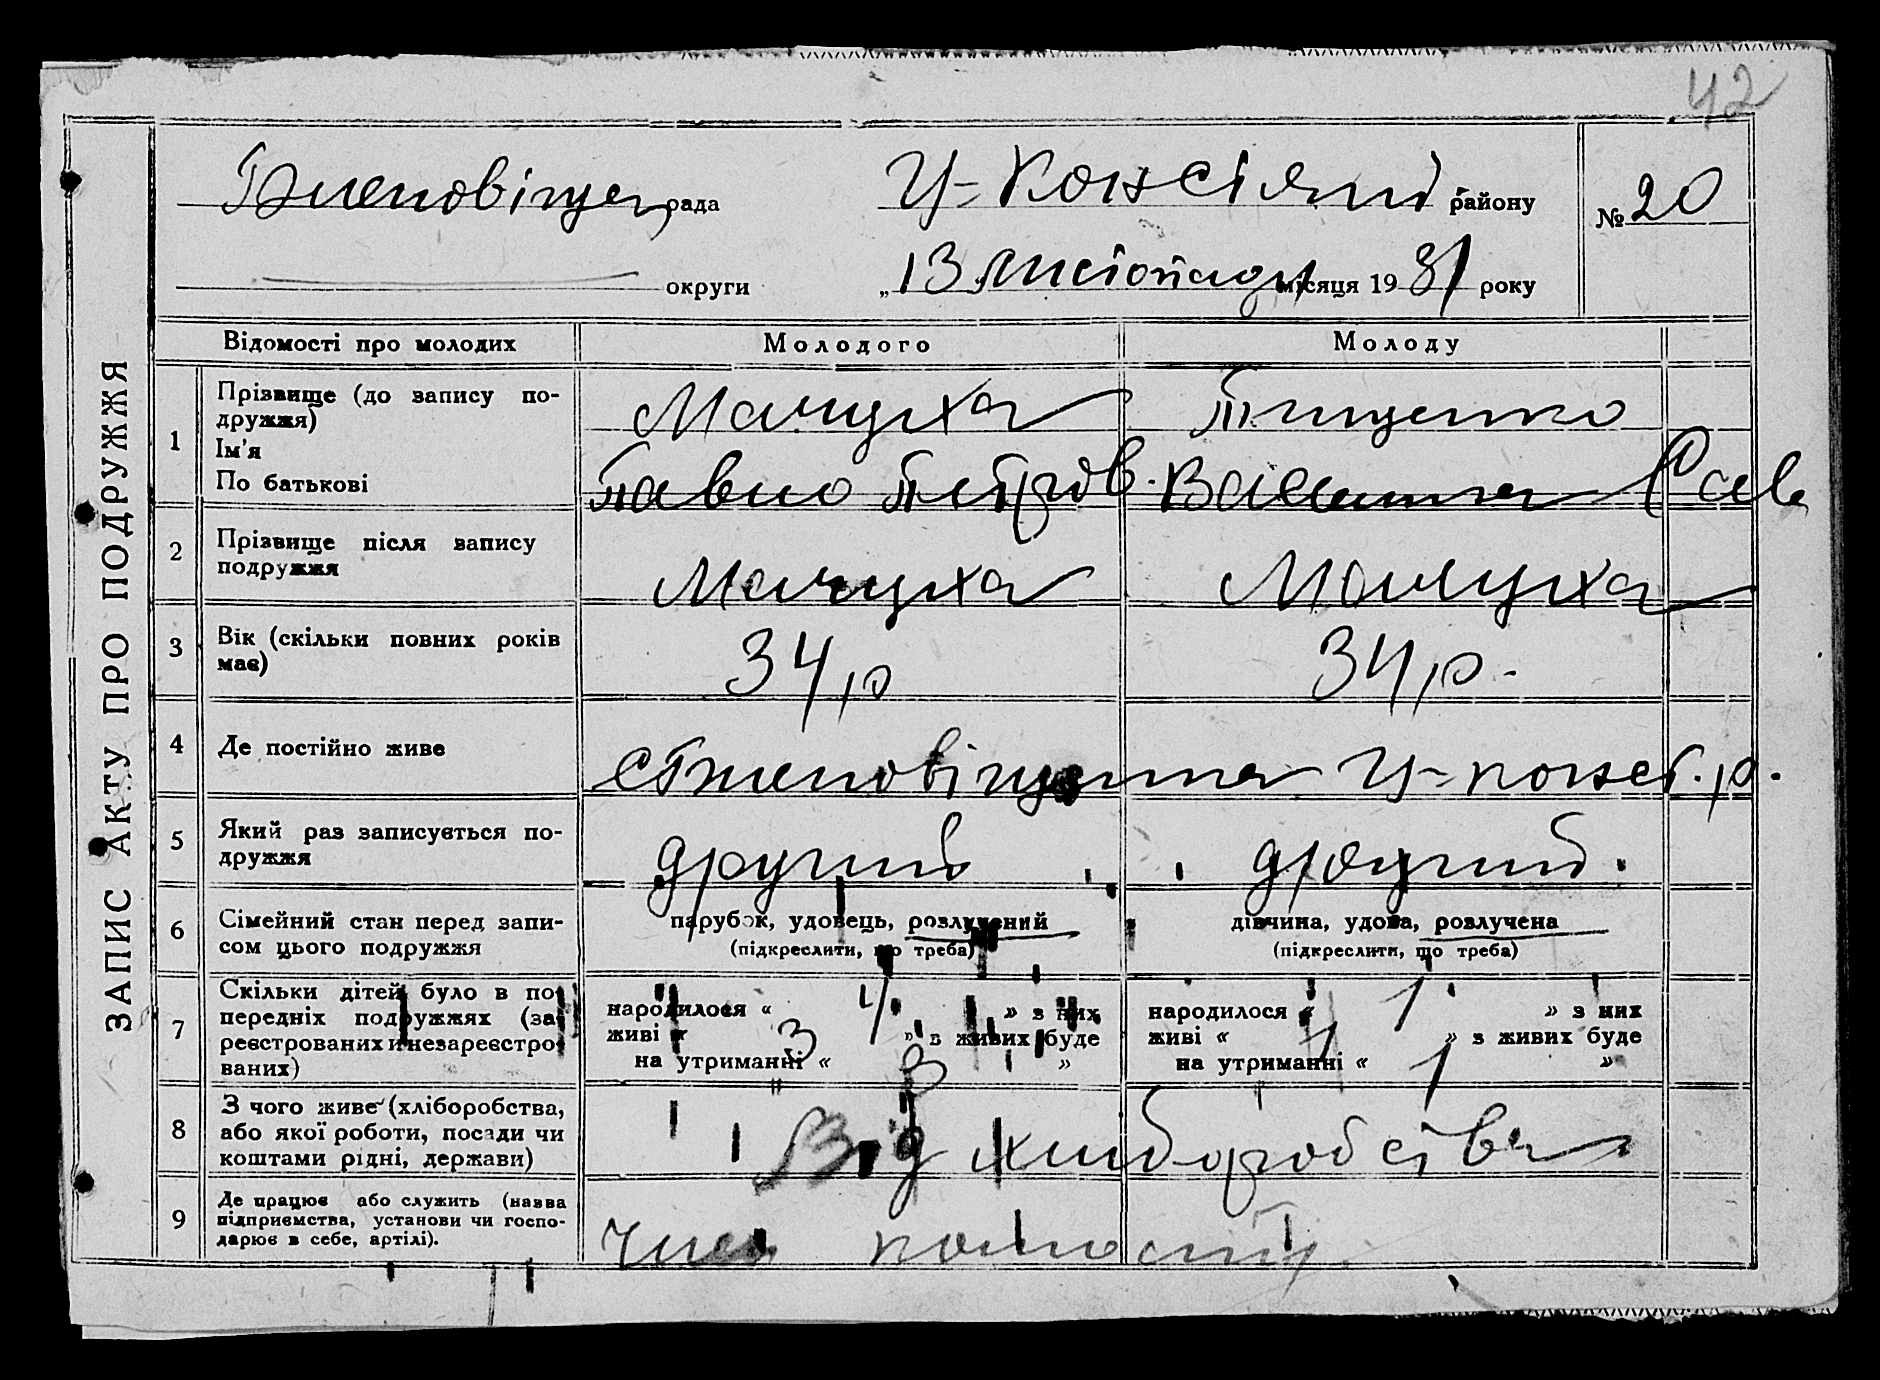 42
рада
У-Констянт району
№ 20
округи
„13 листопада місяця 1931 року
ЗАПИС АКТУ ПРО ПОДРУЖЖЯ
Відомості про молодих
Молодого
Молоду
1
Прізвище (до запису по-
дружжя)
Ім'я
По батькові
Мачуха
Тищенко
Павло Петров.
Василина Сав
2
Прізвище після запису
подружжя
Мачуха
Мачуха
3
Вік (скільки повних років
має)
34 р
34 р.
4
Де постійно живе
У-конст. р.
5
Який раз записується по-
дружжя
другий
другий.
6
Сімейний стан перед запи-
сом цього подружжя
парубок, удовець, розлучений
(підкреслити, що треба)
дівчина, удова, розлучена
(підкреслити, що треба)
7
Скільки дітей було в по-
передніх подружжях (за-
реєстрованих и незареєстро-
ваних)
народилося « 4 » з них
живі « 3 » з живих буде
на утриманні « 3 »
народилося « 1 » з них
живі « 1 » з живих буде
на утриманні « 1 »
8
З чого живе (хліборобства,
або якої роботи, посади чи
коштами рідні, держави)
Від хліборобства
9
Де працює або служить (назва
підприємства, установи чи госпо-
дарює в себе, артілі).
Член колгоспу